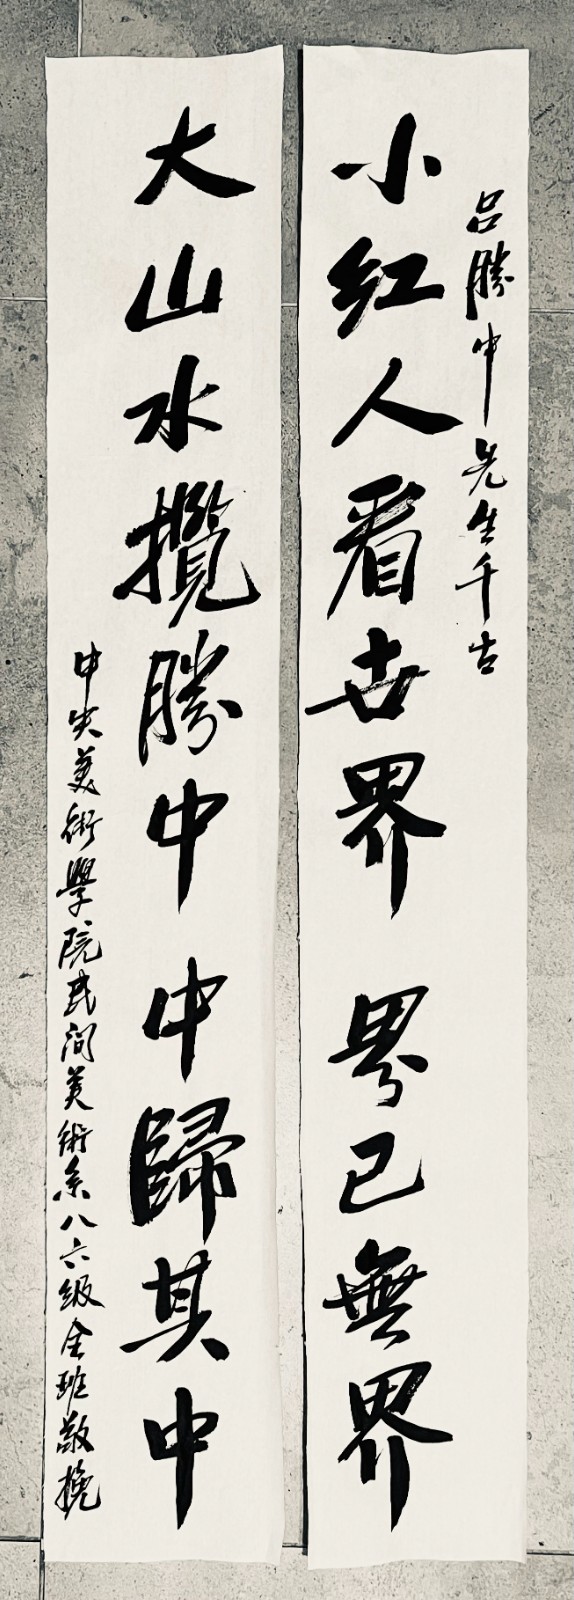 吕勝中先生千古
小红人看世界 界已無界
大山水攬勝中 中歸其中
中央美術學院民间美術系八六级全班敬挽